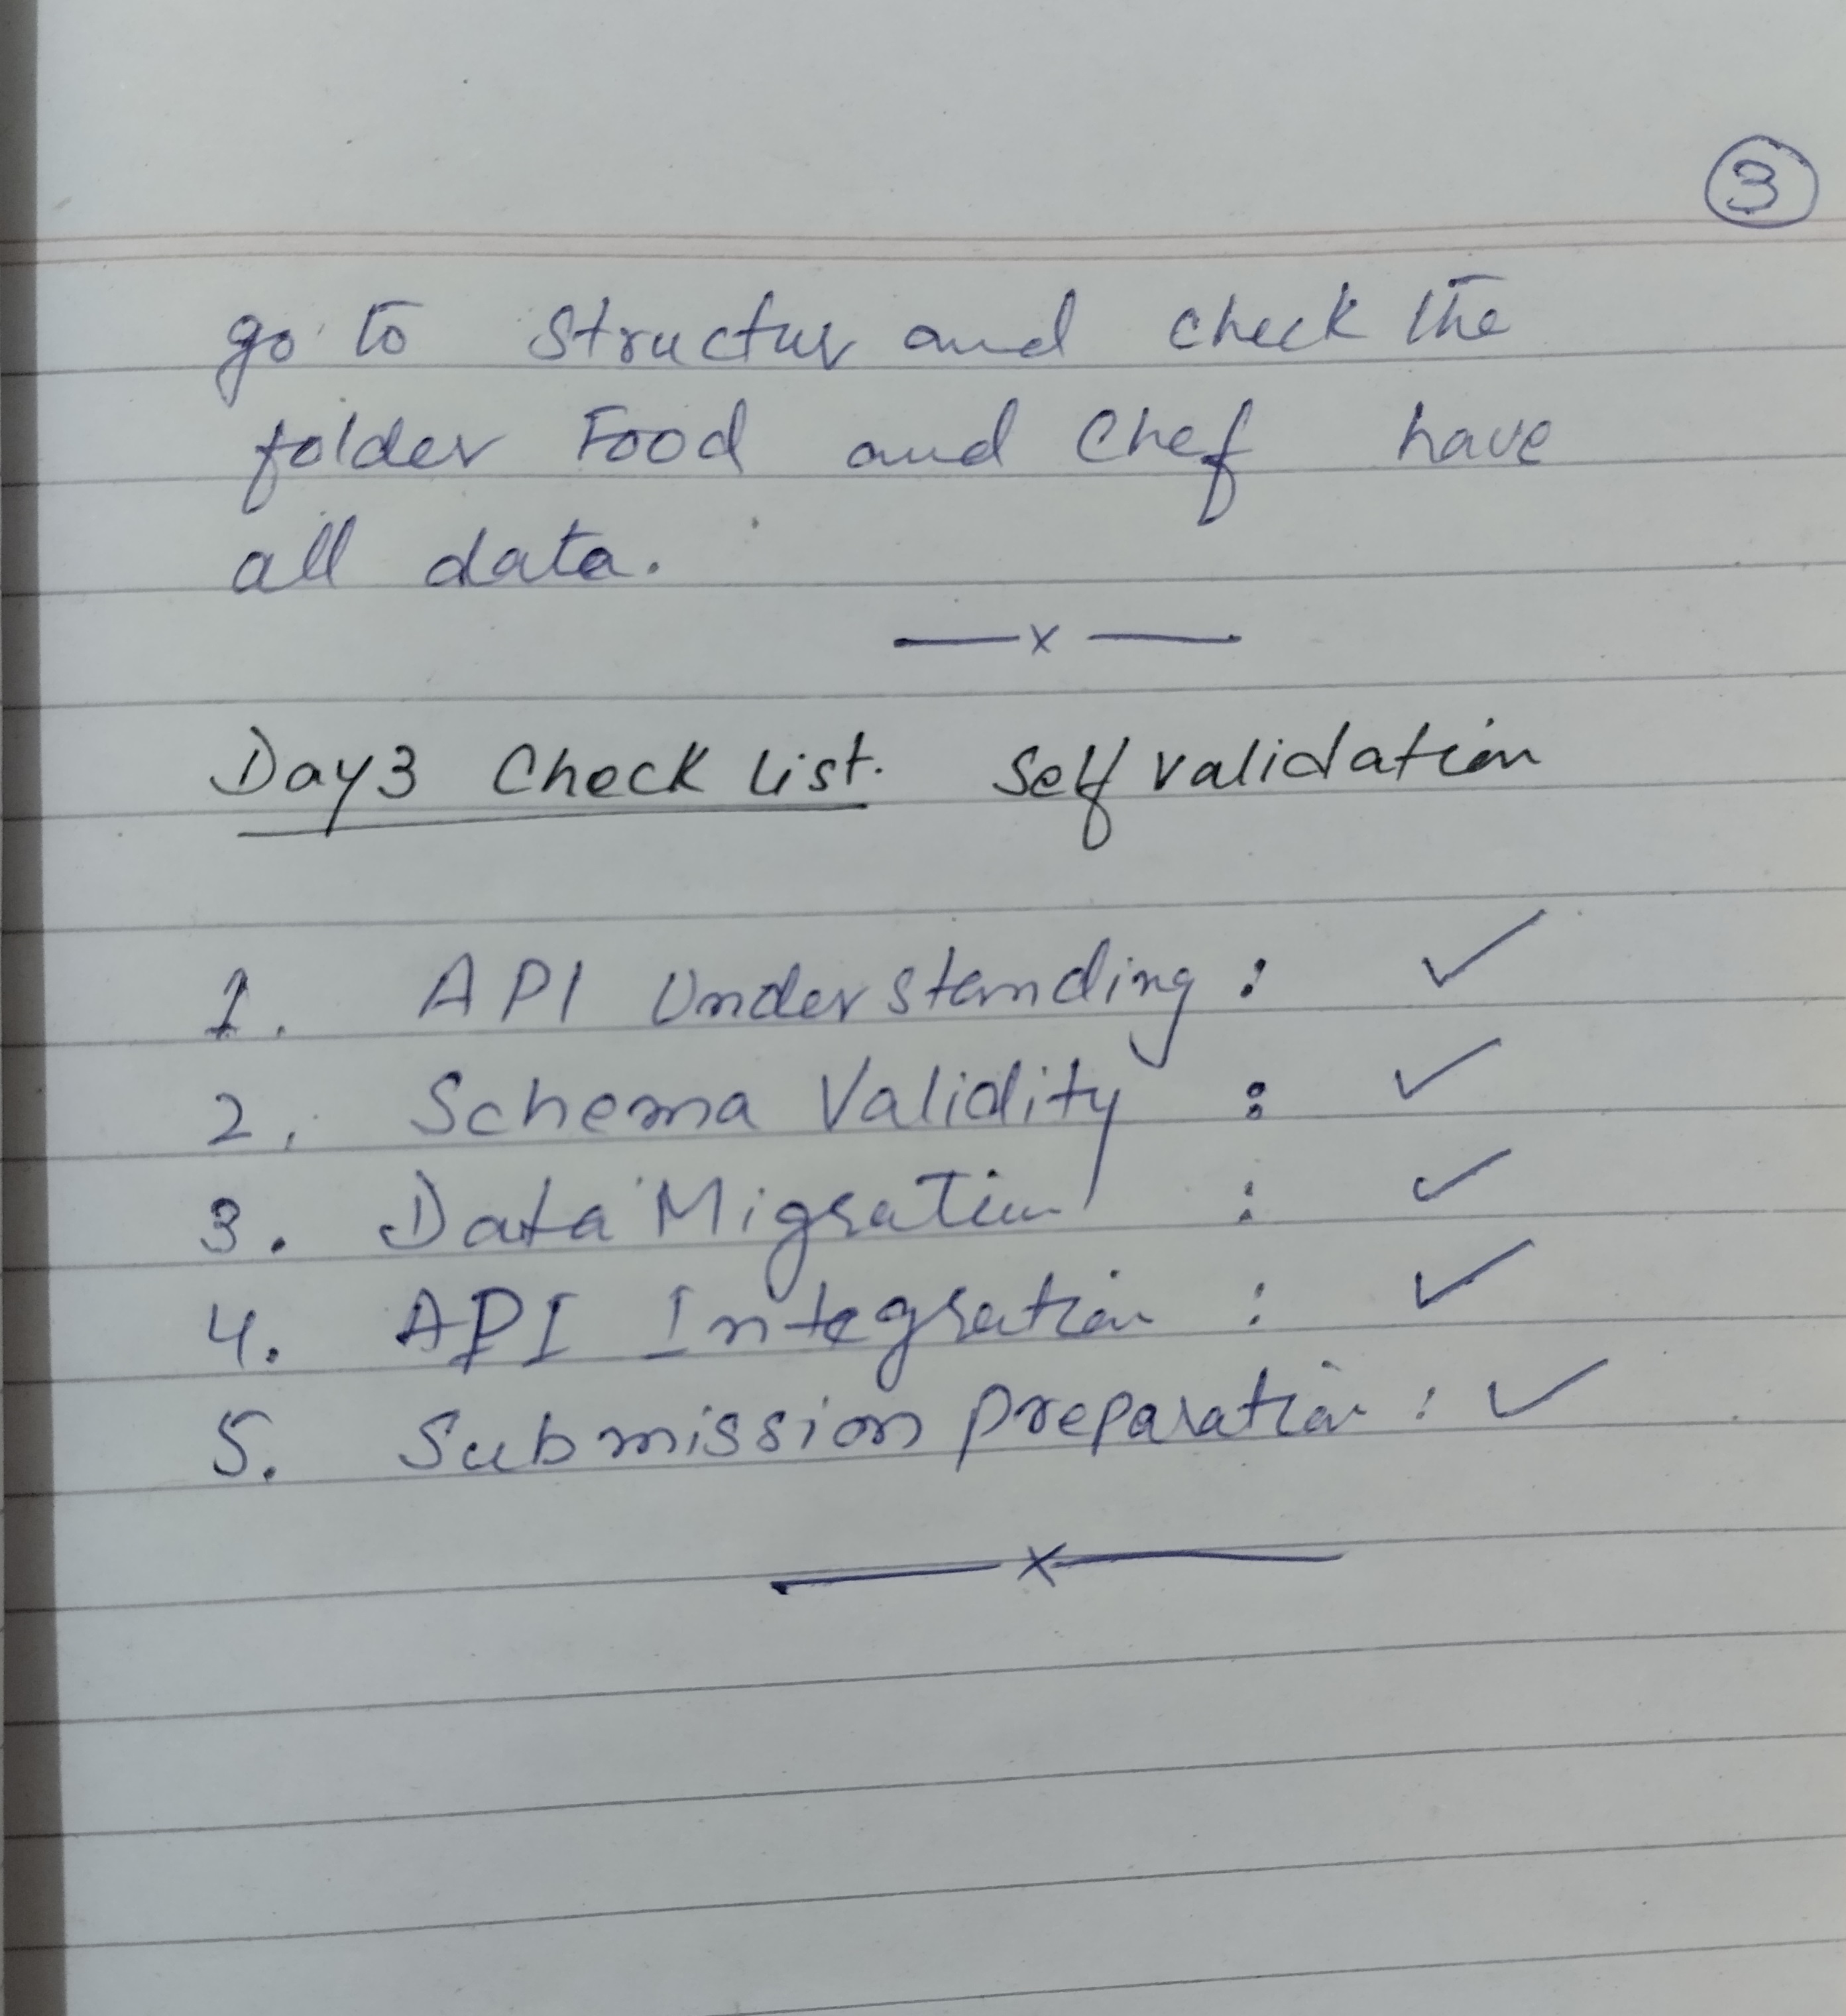 3
go to Structur and check the
folder Food and Chef have
all data.
— x —
Day3 Check List. Self validation
1. API Understanding : ✓
2. Schema Validity : ✓
3. Data Migration : ✓
4. API Integration : ✓
5. Submission preparation : ✓
— x —